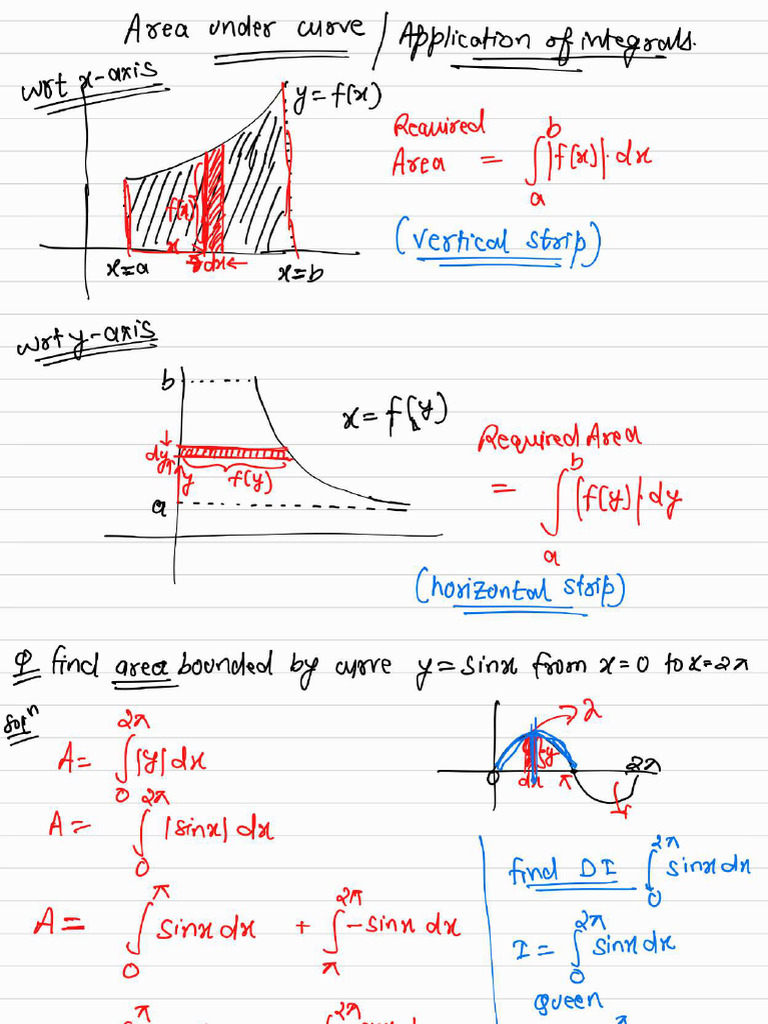 Area under curve / Application of integrals.
wrt x-axis
y = f(x)
Required
Area = ∫_a^b |f(x)|. dx
(vertical strip)
f(x)
x
dx
x=a
x=b
wrt y-axis
b
x = f(y)
dy
y
f(y)
a
Required Area
= ∫_a^b |f(y)|. dy
(horizontal strip)
Q find area bounded by curve y = sinx from x=0 to x=2π
Solⁿ
A = ∫_0^2π |y| dx
2
y
0
dx
π
2π
A = ∫_0^2π |sinx| dx
A = ∫_0^π sinx dx + ∫_π^2π -sinx dx
find DI ∫_0^2π sinx dx
I = ∫_0^2π sinx dx
queen
π
2π
π